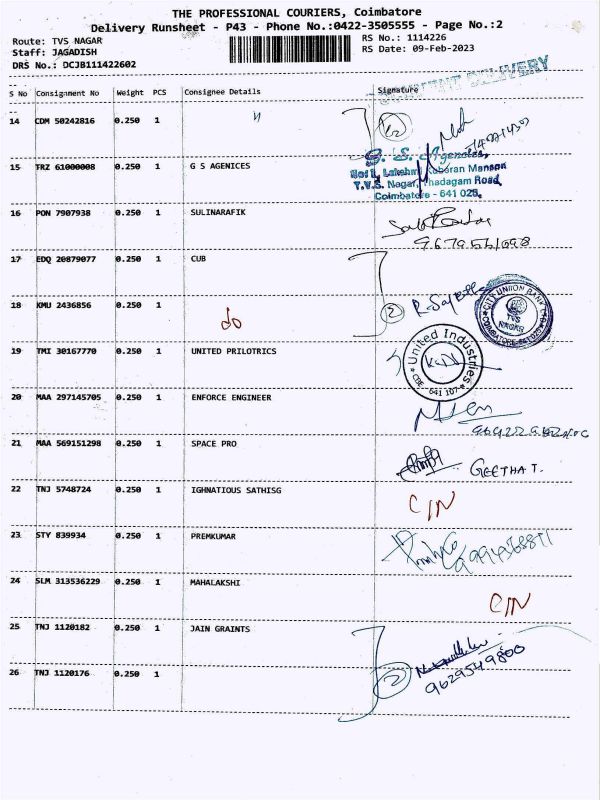 THE PROFESSIONAL COURIERS, Coimbatore
Delivery Runsheet - P43 - Phone No.:0422-3505555 - Page No.:2
Route: TVS NAGAR
Staff: JAGADISH
DRS No.: DCJB111422602
RS No.: 1114226
RS Date: 09-Feb-2023
S No Consignment No Weight PCS Consignee Details Signature
14 CDM 50242816 0.250 1 "
15 TRZ 61000008 0.250 1 G S AGENICES
G. S. Agencies,
No: 1, Lakshmi Kubaran Mansion
T.V.S. Nagar, Thadagam Road,
Coimbatore - 641 025.
16 PON 7907938 0.250 1 SULINARAFIK
17 EDQ 20879077 0.250 1 CUB
18 KMU 2436856 0.250 1 do
2
CITY UNION BANK LTD
TVS NAGAR
19 TMI 30167770 0.250 1 UNITED PRILOTRICS
United Industries
CBE - 641 107
20 MAA 297145705 0.250 1 ENFORCE ENGINEER
21 MAA 569151298 0.250 1 SPACE PRO
GEETHA T.
22 TNJ 5748724 0.250 1 IGHNATIOUS SATHISG
C/N
23 STY 839934 0.250 1 PREMKUMAR
24 SLM 313536229 0.250 1 MAHALAKSHI
C/N
25 TNJ 1120182 0.250 1 JAIN GRAINTS
26 TNJ 1120176 0.250 1
2
9629549800